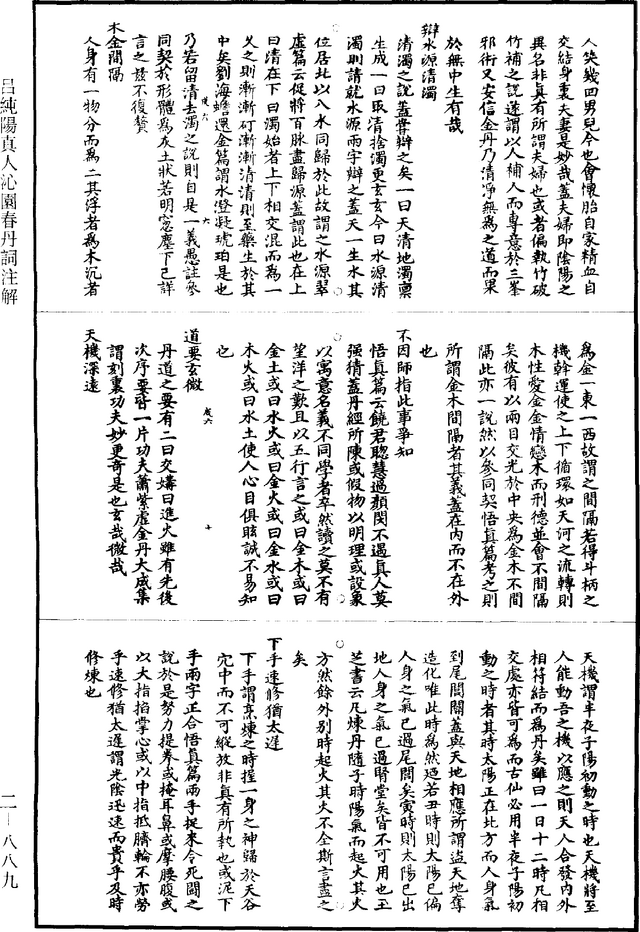 人笑幾四男兒今也會懷胎自家精血自
交結身裏夫妻是妙哉蓋夫婦即陰陽之
異名非真有所謂夫婦也或者偏執竹破
竹補之說遂謂以人補人而專意於三峯
邪術又安信金丹乃清凈無為之道而果
於無中生有哉
辯水源清濁
清濁之說蓋嘗辯之矣一曰天清地濁稟
生成一曰取清捨濁更玄玄今曰水源清
濁則請就水源兩字辯之蓋天一生水其
位居北以八水同歸於此故謂之水源翠
虛篇云促將百脉盡歸源蓋謂此也在上
曰清在下曰濁始者上下相交混而為一
久之則漸漸矴漸漸清清則至藥生於其
中矣劉海蟾還金篇謂水澄凝琥珀是也
乃若留清去濁之說則自是一義愚註參
同契於形體為灰土狀若明窓塵下已詳
言之茲不復贅
木金間隔
人身有一物分而為二其浮者為木沉者
為金一東一西故謂之間隔若得斗柄之
機幹運使之上下循環如天河之流轉則
木性愛金金情戀木而刑德並會不間隔
矣彼有以兩目交光於中央為金木不間
隔此亦一說然以參同契悟真篇考之則
所謂金木間隔者其義蓋在內而不在外
也
不因師指此事爭知
悟真篇云饒君聰慧過顏閔不遇真人莫
强猜蓋丹經所陳或假物以明理或設象
以寓意名義不同學者卒然讀之莫不有
望洋之歎且以五行言之或曰金木或曰
金土或曰水火或曰金火或曰金水或曰
木火或曰水土使人心目俱眩誠不易知
也
道要玄微
丹道之要有二曰交媾曰進火雖有先後
次序要皆一片功夫蕭紫虛金丹大成集
謂刻裏功夫妙更奇是也玄哉微哉
天機深遠
天機謂半夜子陽初動之時也天機將至
人能動吾之機以應之則天人合發內外
相符結而為丹矣雖曰一日十二時凡相
交處亦皆可為而古仙必用半夜子陽初
動之時者其時太陽正在北方而人身氣
到尾閭關蓋與天地相應所謂盜天地奪
造化唯此時為然廼若丑時則太陽已偏
人身之氣已過尾閭矣寅時則太陽已出
地人身之氣已過腎堂矣皆不可用也玉
芝書云凡煉丹隨子時陽氣而起火其火
方然餘外別時起火其火不全斯言盡之
矣
下手速修猶太遲
下手謂烹煉之時握一身之神歸於天谷
穴中而不可縱放非真有所執也或泥下
手兩字正合悟真篇兩手捉來令死鬬之
說於是努力提拳或掩耳鼻或摩腰腹或
以大指掐掌心或以中指抵臍輪不亦勞
乎速修猶太遲謂光陰迅速而貴乎及時
修煉也
呂純陽真人沁園春丹詞注解
二—八八九